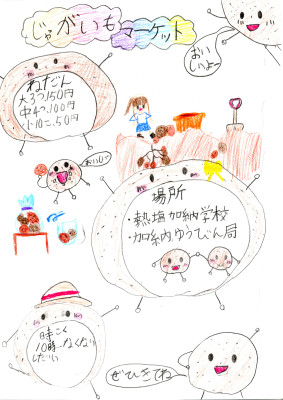 じゃがいもマーケット
おい
しいよー
ねだん
大3つ150円
中4つ100円
小10こ50円
おいしい
場所
・熱塩加納学校
・加納ゆうびん局
時こく
10時～なくなり
しだい
ぜひきてね